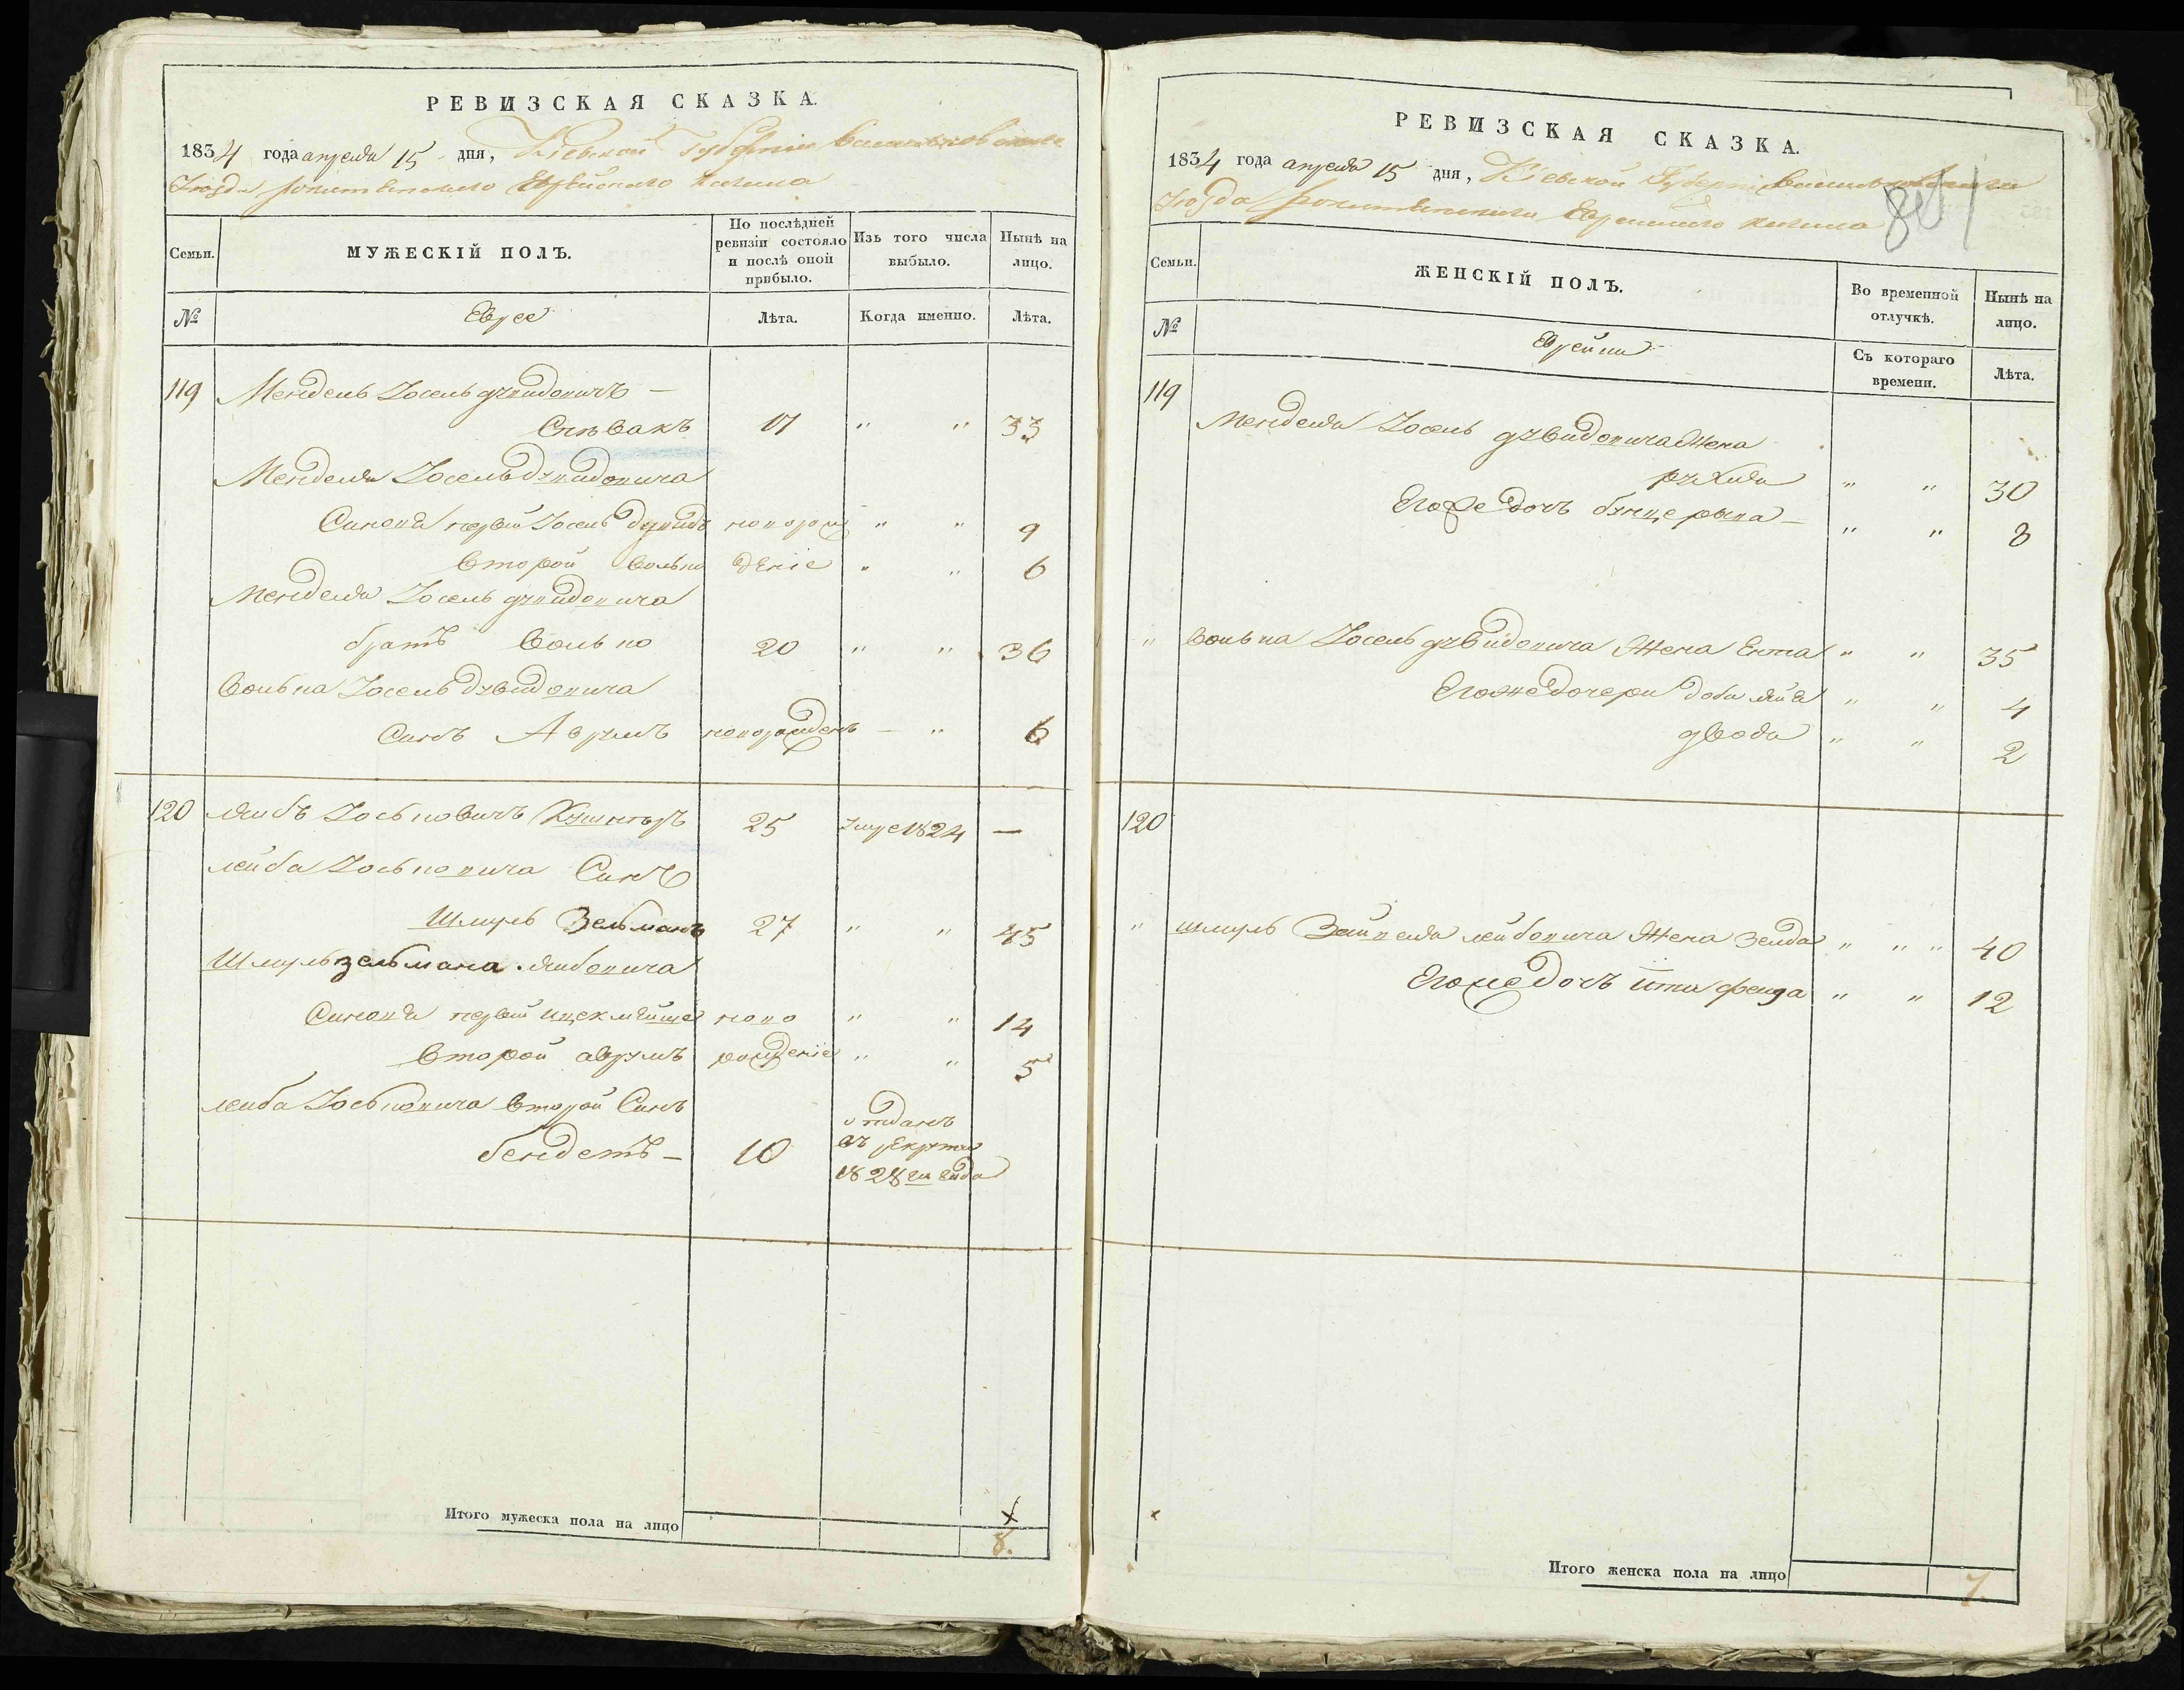 РЕВИЗСКАЯ СКАЗКА.
1834 года апреля 15 дня, Кіевской Губерніи Васильковского
Уезда Еврейского Кагала
Семьи.
МУЖЕСКІЙ ПОЛЪ.
По послѣдней ревизіи состояло и послѣ оной прибыло.
Изъ того числа выбыло.
Нынѣ на лицо.
№
Евреи
Лѣта.
Когда именно.
Лѣта.
119 Мендель Іосель дувидовичъ —
Спѣвакъ 17 " " 33
Менделя Іосель Дувидовича
Синовя первій Іосель Дувидъ новорож " " 9
Второй Волько деніе " " 6
Менделя Іосель дувидовича
братъ Волько 20 " " 36
Волька Іосель Дувидовича
Синъ Аврумъ новорожденъ — " 6
120 Лейбъ Іоськовичъ 25 Умре 1824 —
Лейба Іоськовича Синъ
Шмуль Зельманъ 27 " " 45
Шмуль Зельмана Лейбовича
Синовя первій ново " " 14
Второй аврумъ рожденіе " " 5
Лейба Іоськовича Второй Синъ
бендетъ — 10 отданъ
въ рекруты
1828го года
Итого мужеска пола на лицо
8.
РЕВИЗСКАЯ СКАЗКА.
1834 года апреля 15 дня, Кіевской Губерніи Васильковского
Уезда Еврейского Кагала
Семьи.
ЖЕНСКІЙ ПОЛЪ.
Во временной отлучкѣ.
Нынѣ на лицо.
№
Еврейки
Съ котораго времени.
Лѣта.
119
Менделя Іосель дувидовича Жена
рухля " " 30
Егоже дочъ — " " 8
" Волька Іосель дувидовича Жена Ента " " 35
Егоже дочери доба " " 4
двойра " " 2
120
" Шмуль Лейбовича Жена Зелда " " " 40
Егоже дочъ ита фейга " " 12
Итого женска пола на лицо
7.